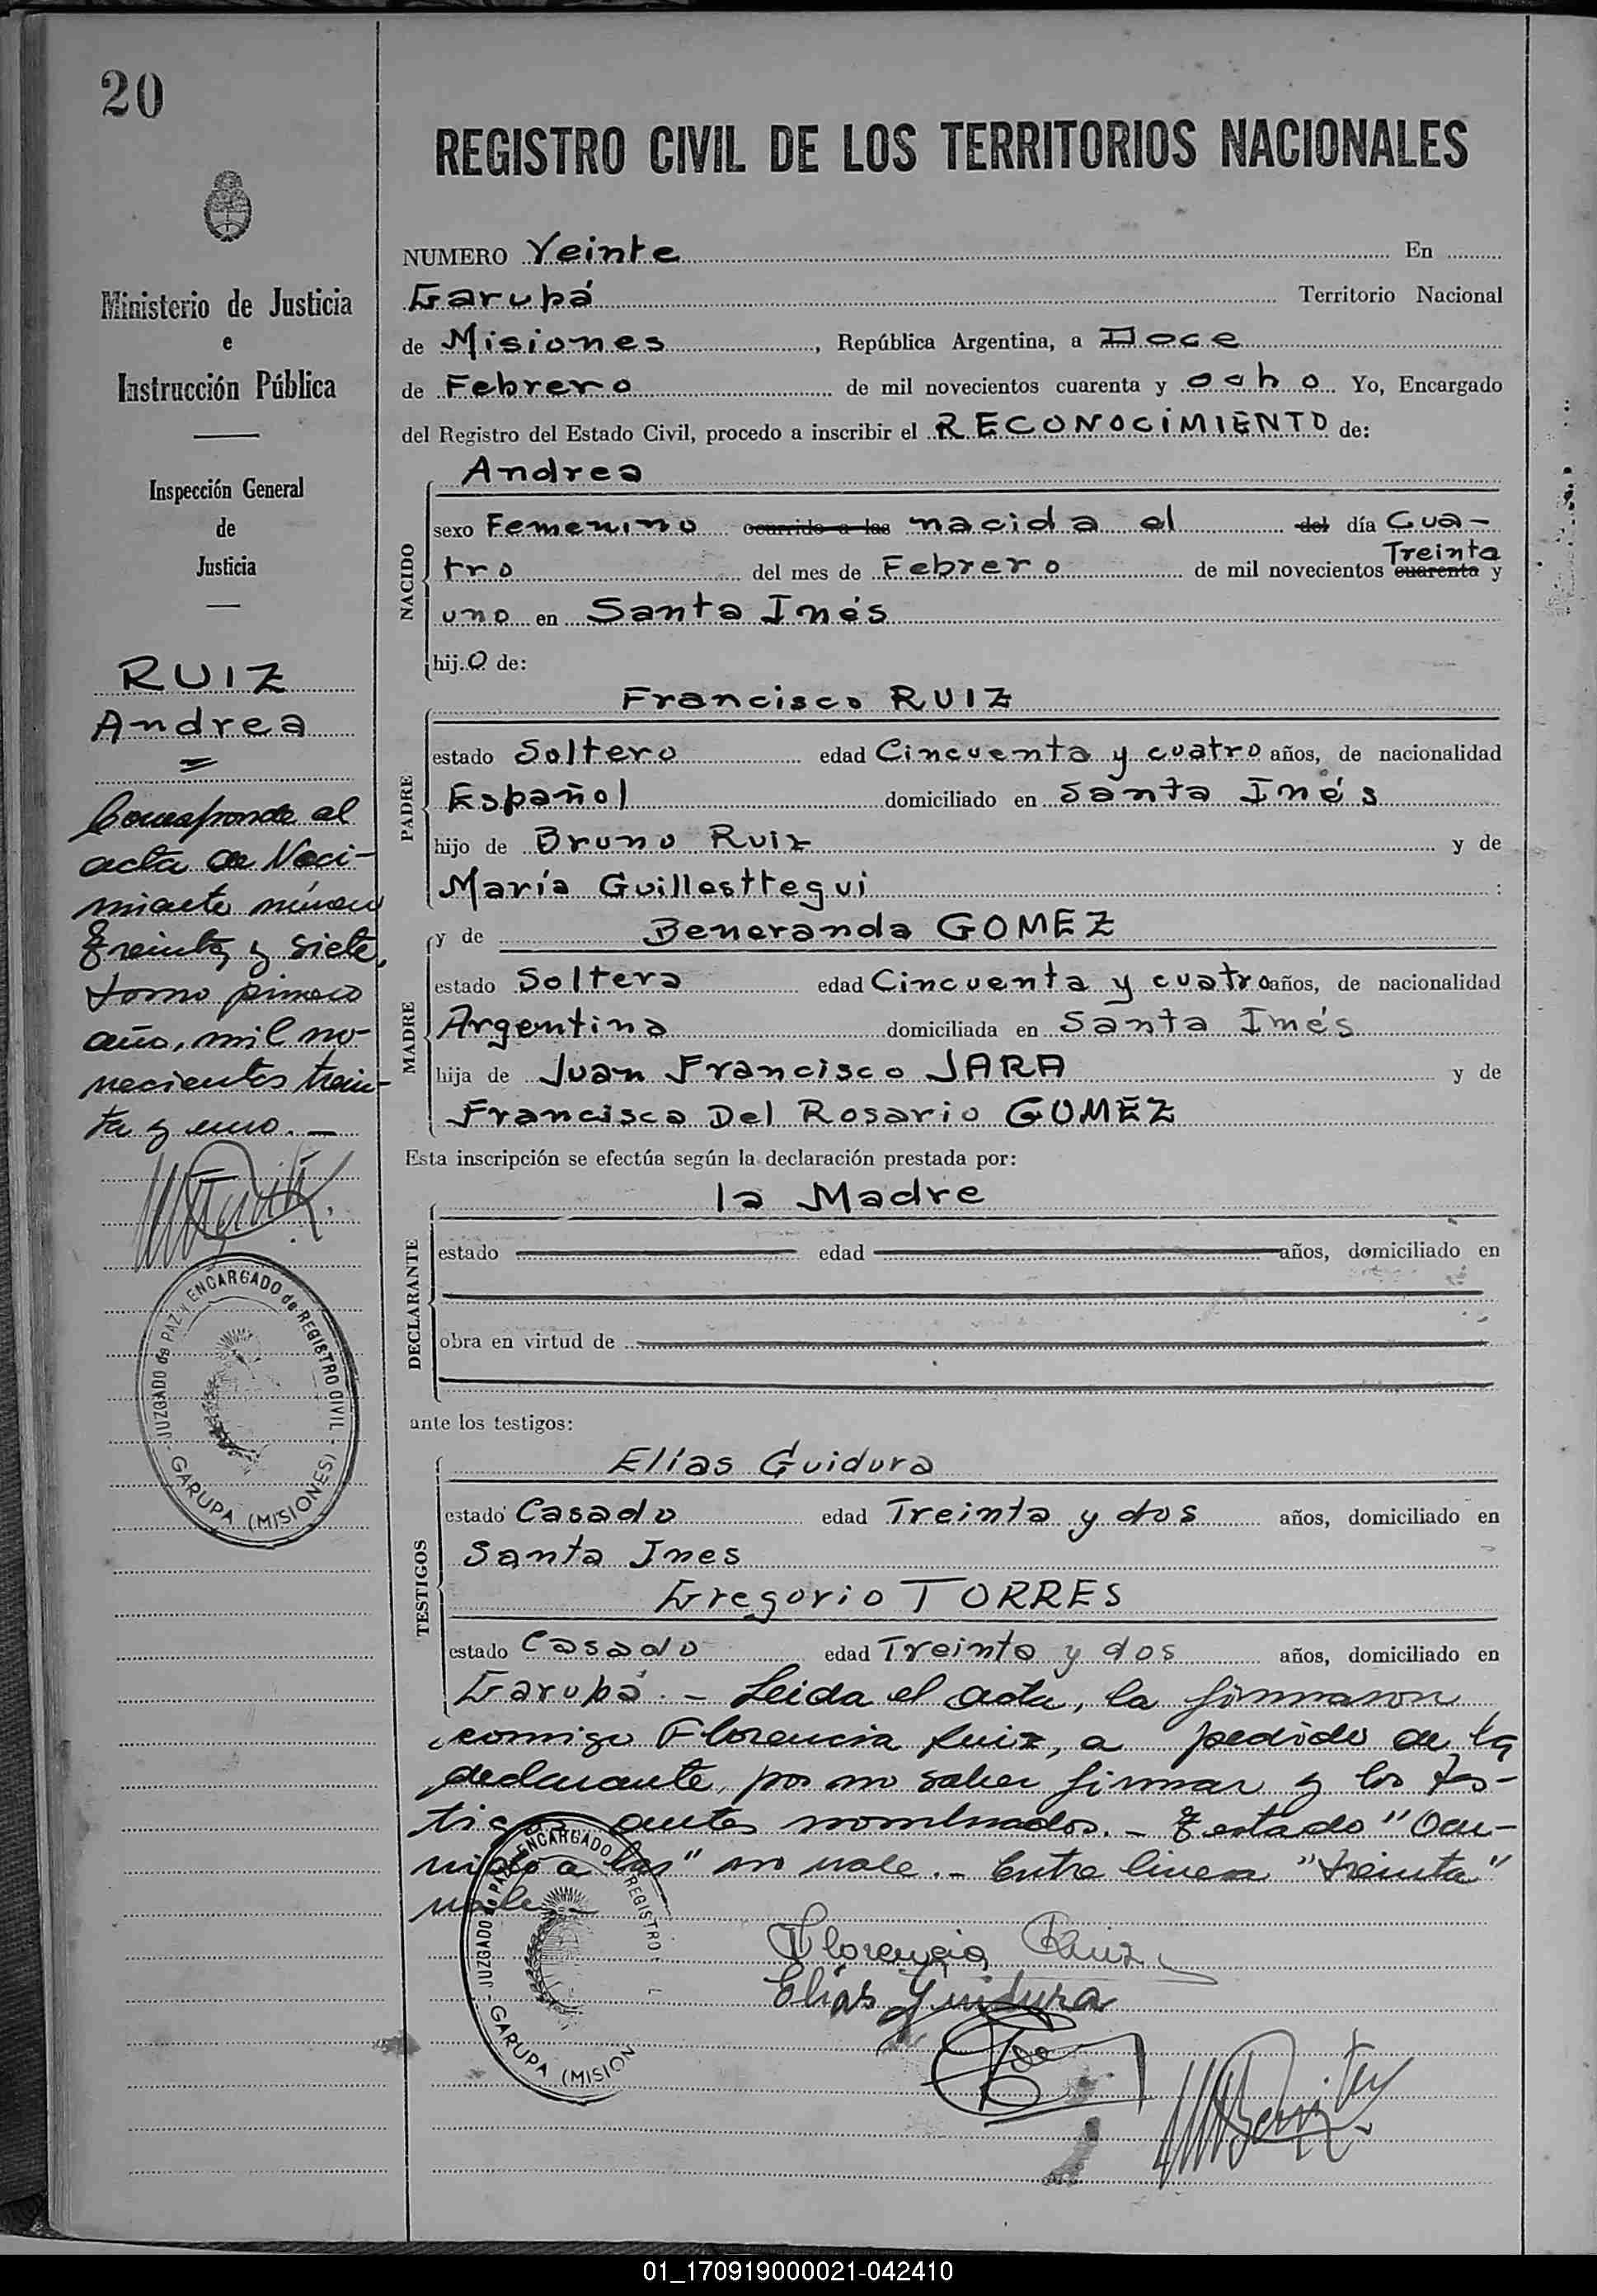 20
REGISTRO CIVIL DE LOS TERRITORIOS NACIONALES
Ministerio de Justicia
e
Instrucción Pública
Inspección General
de
Justicia
RUIZ
Andrea
=
Corresponde al
acta de Naci-
miento número
treinta y siete,
tomo primero
año, mil no-
vecientos trein-
ta y uno. —
JUZGADO de PAZ y ENCARGADO de REGISTRO CIVIL
- GARUPA (MISIONES) -
NUMERO Veinte En
Garupá Territorio Nacional
de Misiones, República Argentina, a Doce
de Febrero de mil novecientos cuarenta y ocho Yo, Encargado
del Registro del Estado Civil, procedo a inscribir el RECONOCIMIENTO de:
NACIDO
Andrea
sexo Femenino ocurrido a las nacida el del día Cua-
Treinta
tro del mes de Febrero de mil novecientos cuarenta y
uno en Santa Inés
hij.o de:
PADRE
Francisco RUIZ
estado Soltero edad Cincuenta y cuatro años, de nacionalidad
Español domiciliado en Santa Inés
hijo de Bruno Ruiz y de
María Guillesttegui :
MADRE
y de Beneranda GOMEZ
estado Soltera edad Cincuenta y cuatro años, de nacionalidad
Argentina domiciliada en Santa Inés
hija de Juan Francisco JARA y de
Francisca Del Rosario GOMEZ
Esta inscripción se efectúa según la declaración prestada por:
DECLARANTE
la Madre
estado edad años, domiciliado en
obra en virtud de
ante los testigos:
TESTIGOS
Elías Guidura
estado Casado edad Treinta y dos años, domiciliado en
Santa Ines
Gregorio TORRES
estado Casado edad Treinta y dos años, domiciliado en
Garupá. - Leida el acta, la firmaron
conmigo Florencia Ruiz, a pedido de la
declarante, por no saber firmar y los tes-
tigos antes nombrados. - Testado "Ocu-
rrido a las" no vale. - Entre linea "treinta"
vale. -
JUZGADO de PAZ y ENCARGADO REGISTRO
- GARUPA (MISION
Florencia Ruiz
Elías Guidura
01_170919000021-042410